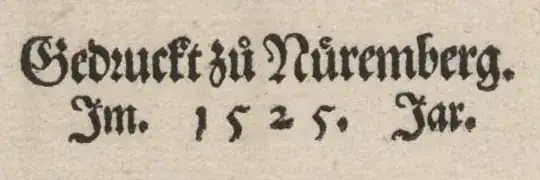 Gedruckt zů Nůremberg.
Im. 1525. Jar.